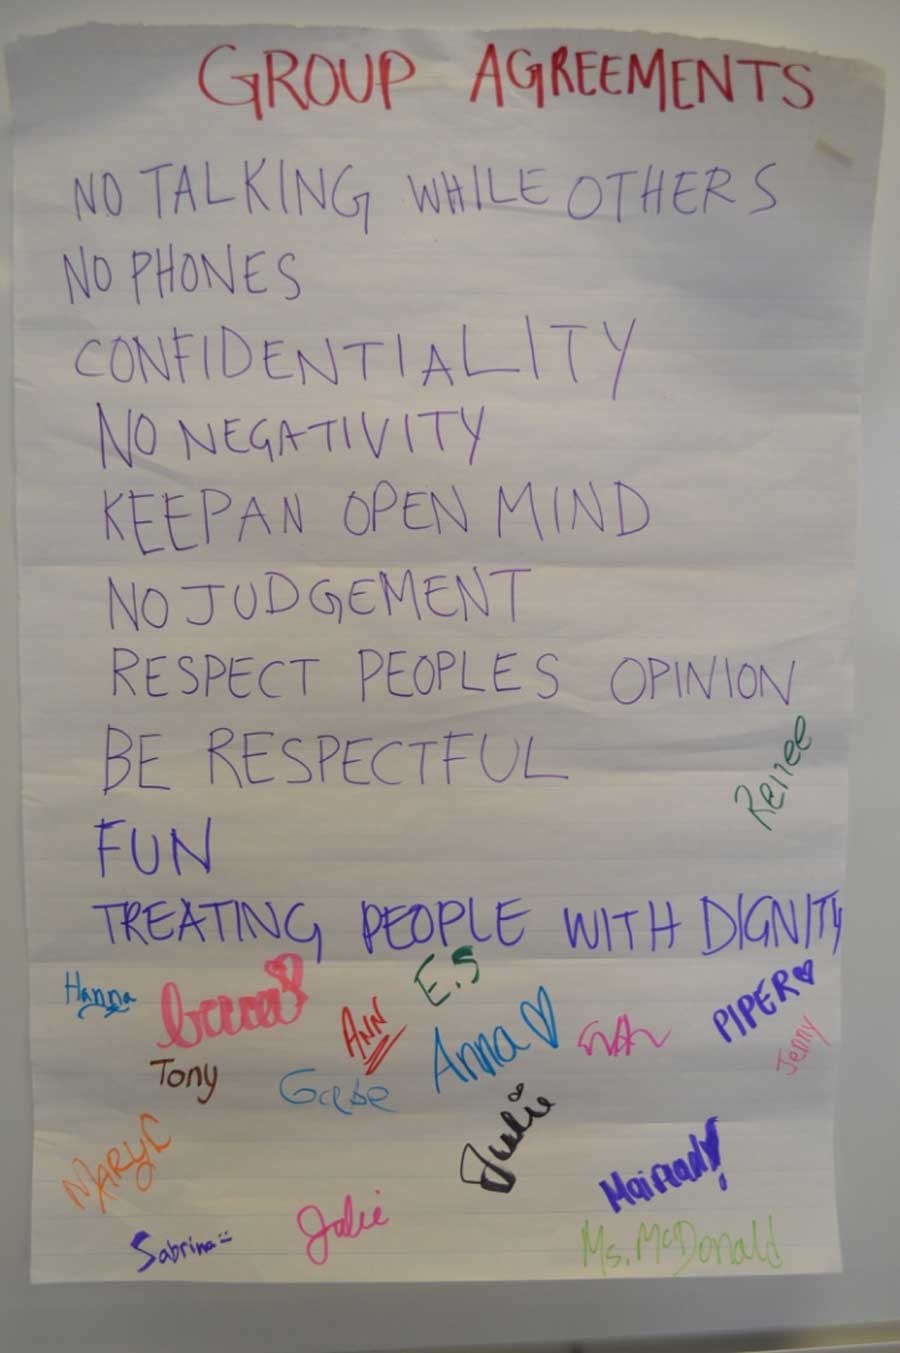 GROUP AGREEMENTS
NO TALKING WHILE OTHERS
NO PHONES
CONFIDENTIALITY
NO NEGATIVITY
KEEP AN OPEN MIND
NO JUDGEMENT
RESPECT PEOPLES OPINION
BE RESPECTFUL
Renee
FUN
TREATING PEOPLE WITH DIGNITY
Hanna
E.S
ANN
Anna
PIPER
Jenny
Tony
Gabe
Julie
MARY C
Mairead
Sabrina
Julie
Ms. McDonald